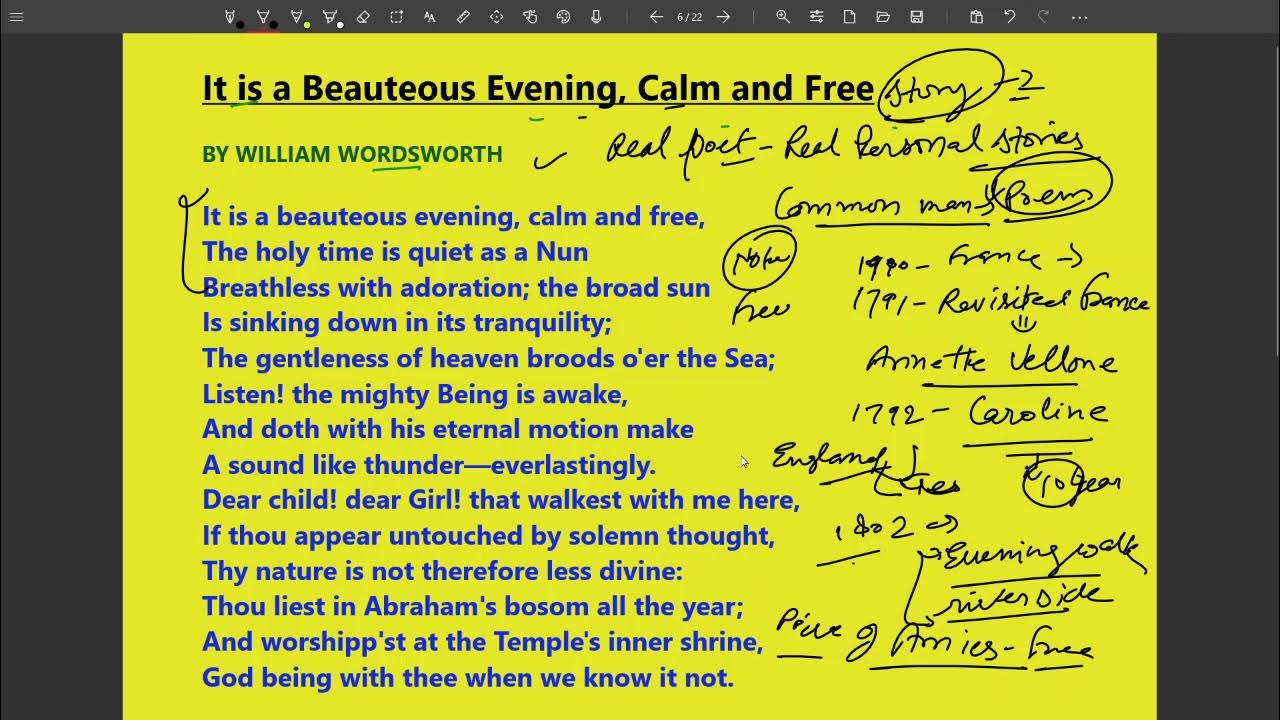 6 / 22
It is a Beauteous Evening, Calm and Free Story - 2
BY WILLIAM WORDSWORTH
Real Poet - Real Personal Stories
Common man → Poems
It is a beauteous evening, calm and free,
The holy time is quiet as a Nun
Breathless with adoration; the broad sun
Is sinking down in its tranquility;
The gentleness of heaven broods o'er the Sea;
Listen! the mighty Being is awake,
And doth with his eternal motion make
A sound like thunder—everlastingly.
Dear child! dear Girl! that walkest with me here,
If thou appear untouched by solemn thought,
Thy nature is not therefore less divine:
Thou liest in Abraham's bosom all the year;
And worshipp'st at the Temple's inner shrine,
God being with thee when we know it not.
Free
France →
1791 - Revisited France
Annette Vellone
1792 - Caroline
England
10 year
1802 ⇒
Evening walk
river side
of Amies - Free